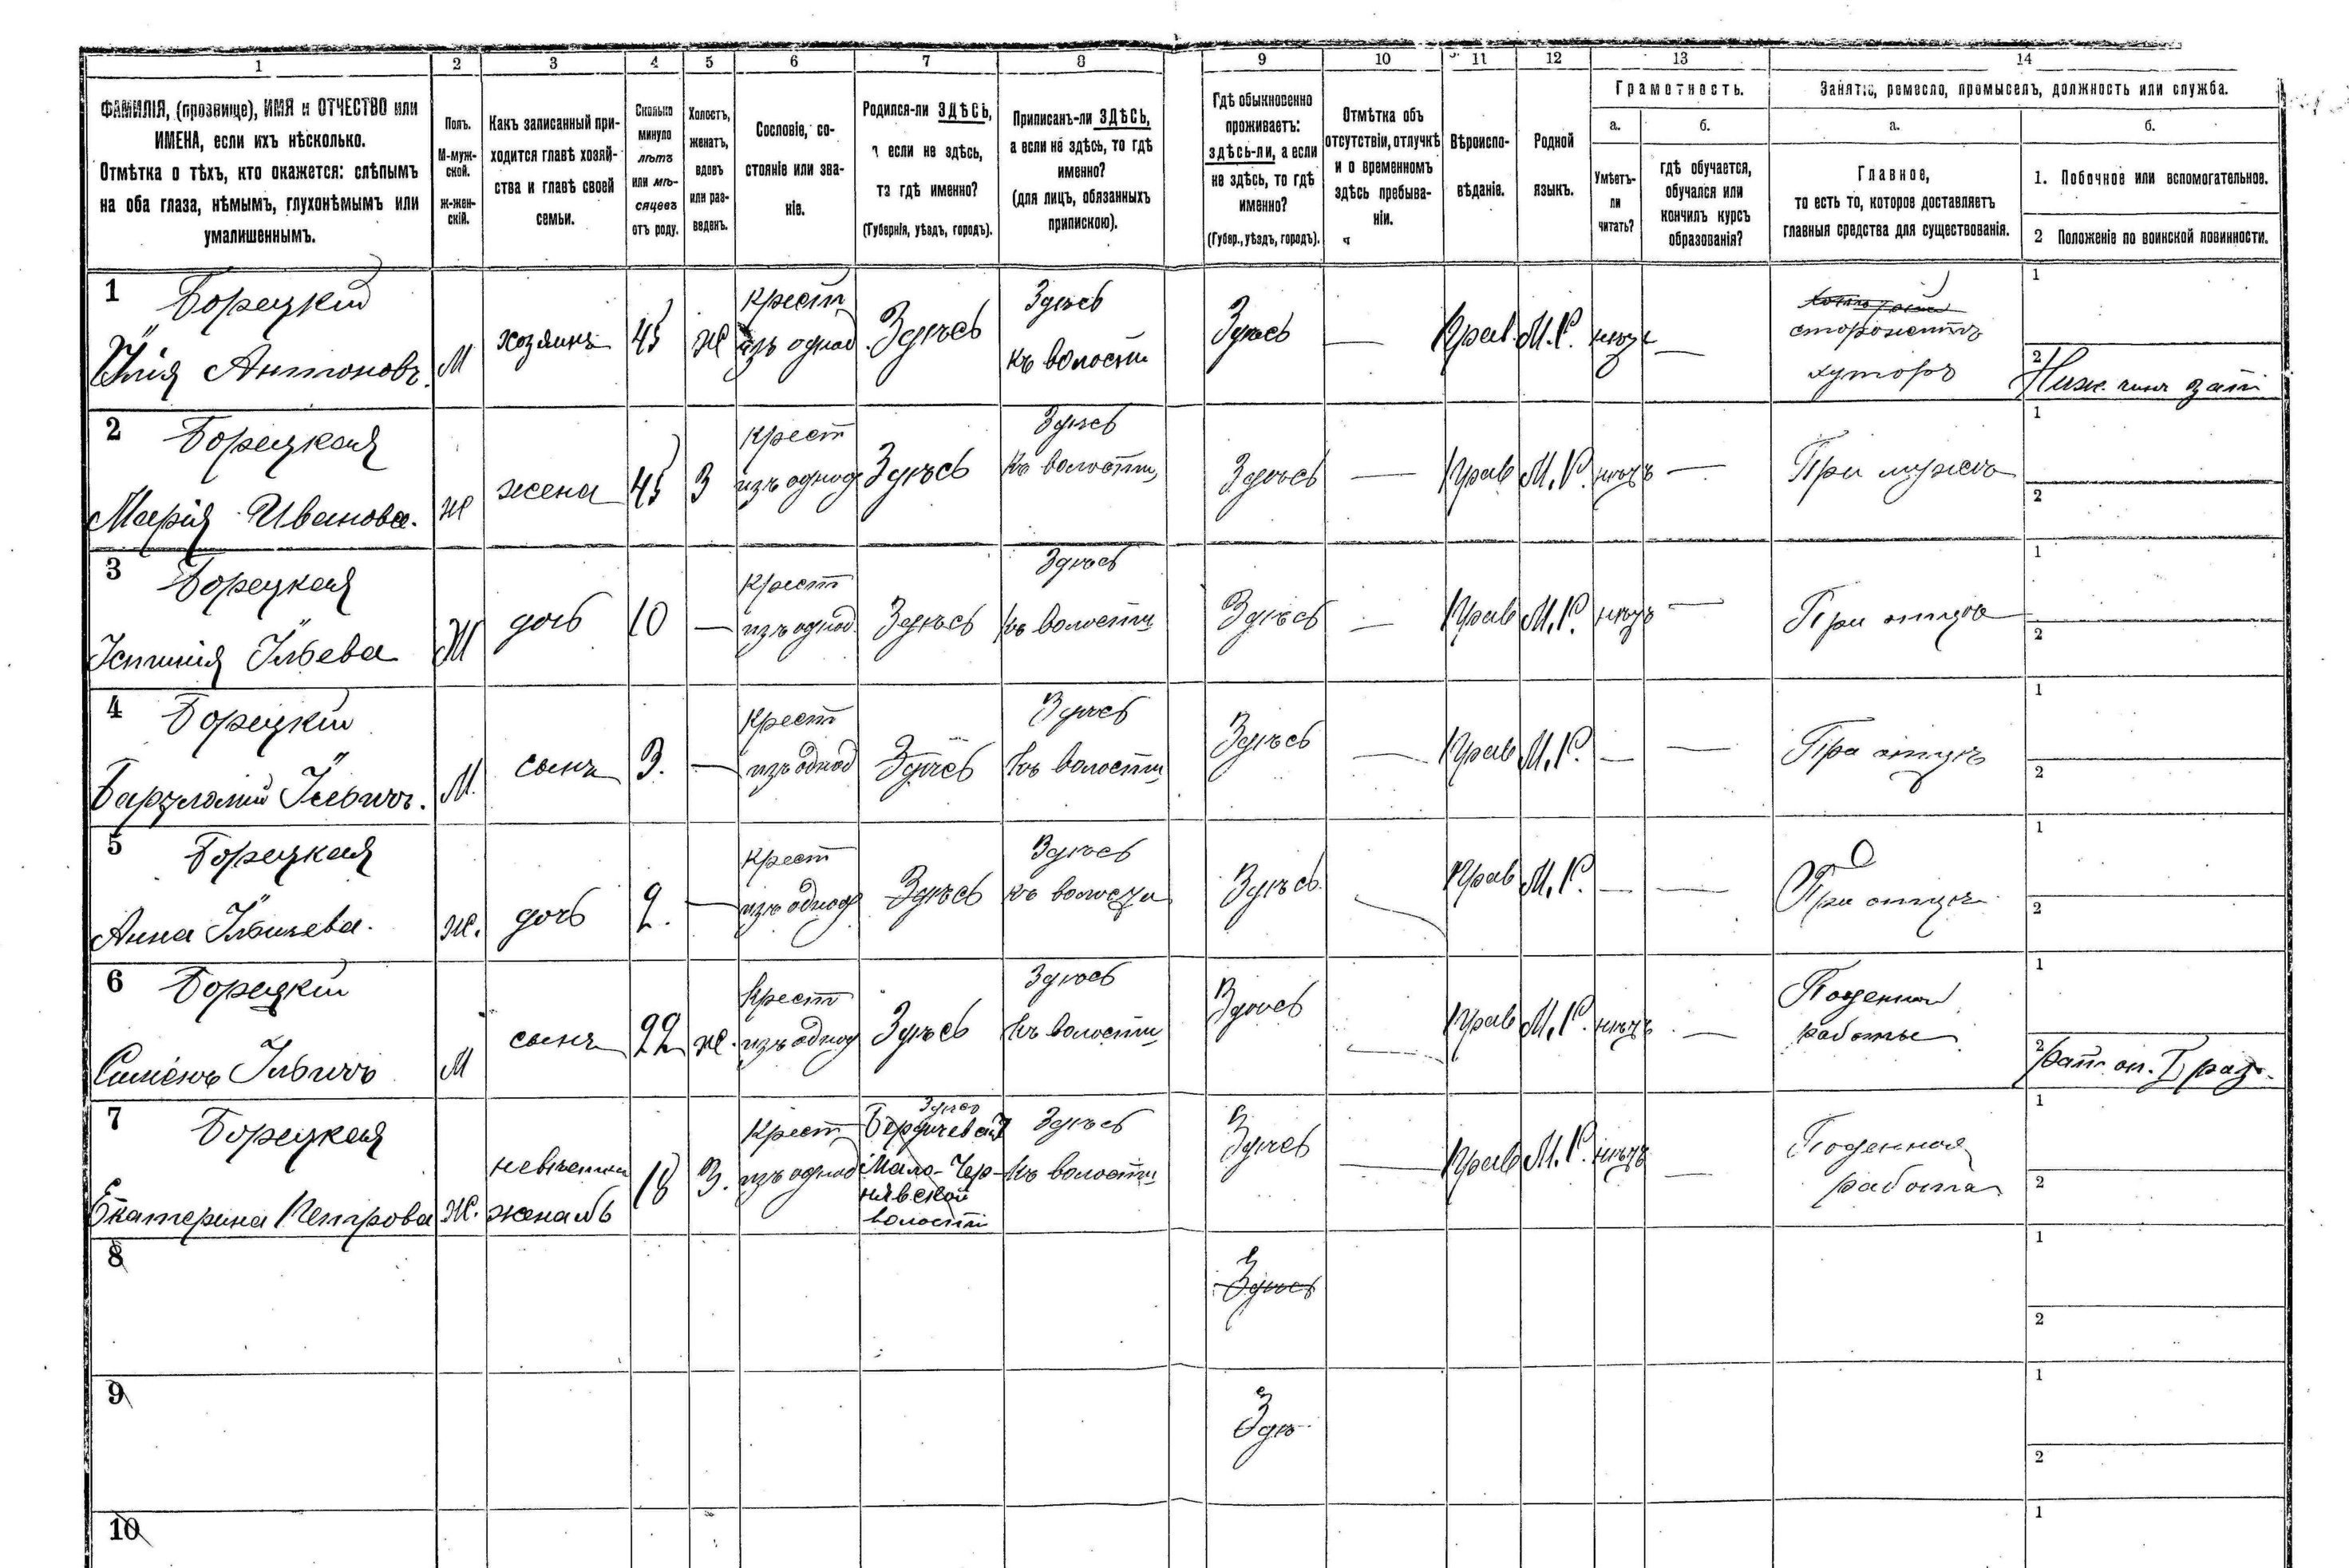 1 2 3 4 5 6 7 8 9 10 11 12 13 14
ФАМИЛІЯ, (прозвище), ИМЯ и ОТЧЕСТВО или
ИМЕНА, если ихъ нѣсколько.
Отмѣтка о тѣхъ, кто окажется: слѣпымъ
на оба глаза, нѣмымъ, глухонѣмымъ или
умалишеннымъ.
Полъ.
М-муж-
ской.
ж-жен-
скій.
Какъ записанный при-
ходится главѣ хозяй-
ства и главѣ своей
семьи.
Сколько
минуло
лѣтъ
или мѣ-
сяцевъ
отъ роду.
Холостъ,
женатъ,
вдовъ
или раз-
веденъ.
Сословіе, со-
стояніе или зва-
ніе.
Родился-ли ЗДѢСЬ,
а если не здѣсь,
то гдѣ именно?
(Губернія, уѣздъ, городъ).
Приписанъ-ли ЗДѢСЬ,
а если не здѣсь, то гдѣ
именно?
(для лицъ, обязанныхъ
припискою).
Гдѣ обыкновенно
проживаетъ:
здѣсь-ли, а если
не здѣсь, то гдѣ
именно?
(Губер., уѣздъ, городъ).
Отмѣтка объ
отсутствіи, отлучкѣ
и о временномъ
здѣсь пребыва-
ніи.
Вѣроиспо-
вѣданіе.
Родной
языкъ.
Грамотность.
а.
Умѣетъ-
ли
читать?
б.
гдѣ обучается,
обучался или
кончилъ курсъ
образованія?
Занятіе, ремесло, промыселъ, должность или служба.
а.
Главное,
то есть то, которое доставляетъ
главныя средства для существованія.
б.
1. Побочное или вспомогательное.
2 Положеніе по воинской повинности.
1 Борецкій
Илія Антоновъ.
М
хозяинъ
45
ж
крест
изъ однод.
Здѣсь
Здѣсь
къ волости
Здѣсь
—
Прав.
М. Р.
нѣтъ
—
1
2
Ниж. чинъ зап
2 Борецкая
Марія Иванова.
ж
жена
45
З
крест
изъ однод
Здѣсь
Здѣсь
къ волости
Здѣсь
—
Прав
М. Р.
нѣтъ
—
При мужѣ
1
2
3 Борецкая
Устинія Ильева
Ж
дочь
10
—
крест
изъ однод.
Здѣсь
Здѣсь
къ волости
Здѣсь
—
Прав
М. Р.
нѣтъ
—
При отцѣ
1
2
4 Борецкій
Ильичъ.
М.
сынъ
3.
—
крест
изъ однод
Здѣсь
Здѣсь
къ волости
Здѣсь
—
Прав
М. Р.
—
—
При отцѣ
1
2
5 Борецкая
Анна Ильичева.
ж.
дочь
2.
—
крест
изъ однод
Здѣсь
Здѣсь
къ волости
Здѣсь.
—
Прав
М. Р.
—
—
При отцѣ
1
2
6 Борецкій
Симеонъ Ильичъ
М
сынъ
22
ж.
Крест
изъ однод
Здѣсь
Здѣсь
къ волости
Здѣсь
—
Прав
М. Р.
нѣтъ
—
Поденная
работа
1
2
рат. оп. I раз.
7 Борецкая
Екатерина Петрова
ж.
невѣстка
18
З.
Крест
изъ однод
Здѣсь
Бердичевск
Мало-Чер-
нявской
волости
Здѣсь
къ волости
Здѣсь
—
Прав
М. Р.
нѣтъ
—
Поденная
работа
1
2
8
Здѣсь
1
2
9
Здѣ
1
2
10
1